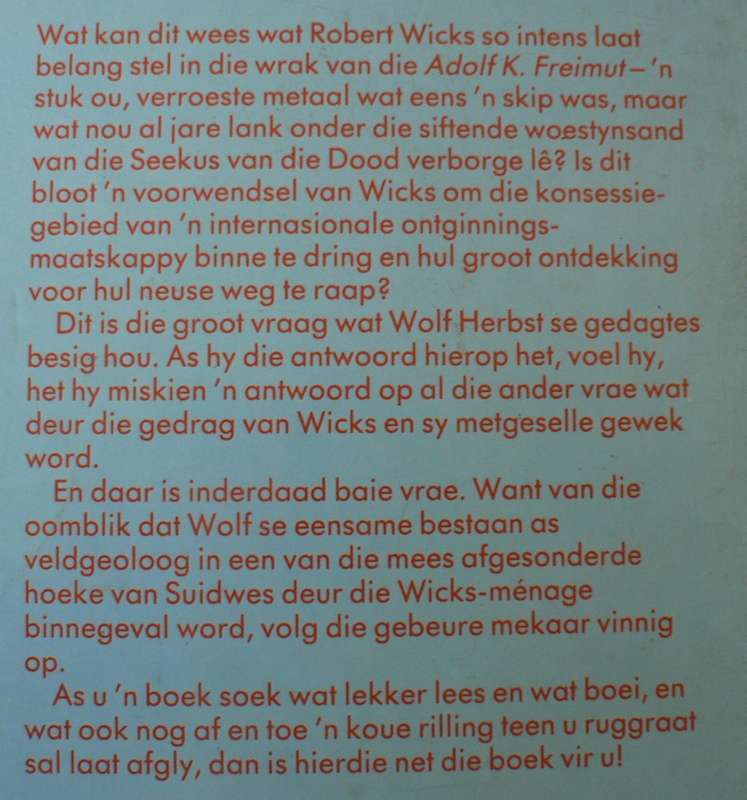 Wat kan dit wees wat Robert Wicks so intens laat
belang stel in die wrak van die Adolf K. Freimut – 'n
stuk ou, verroeste metaal wat eens 'n skip was, maar
wat nou al jare lank onder die siftende woestynsand
van die Seekus van die Dood verborge lê? Is dit
bloot 'n voorwendsel van Wicks om die konsessie-
gebied van 'n internasionale ontginnings-
maatskappy binne te dring en hul groot ontdekking
voor hul neuse weg te raap?
Dit is die groot vraag wat Wolf Herbst se gedagtes
besig hou. As hy die antwoord hierop het, voel hy,
het hy miskien 'n antwoord op al die ander vrae wat
deur die gedrag van Wicks en sy metgeselle gewek
word.
En daar is inderdaad baie vrae. Want van die
oomblik dat Wolf se eensame bestaan as
veldgeoloog in een van die mees afgesonderde
hoeke van Suidwes deur die Wicks-ménage
binnegeval word, volg die gebeure mekaar vinnig
op.
As u 'n boek soek wat lekker lees en wat boei, en
wat ook nog af en toe 'n koue rilling teen u ruggraat
sal laat afgly, dan is hierdie net die boek vir u!